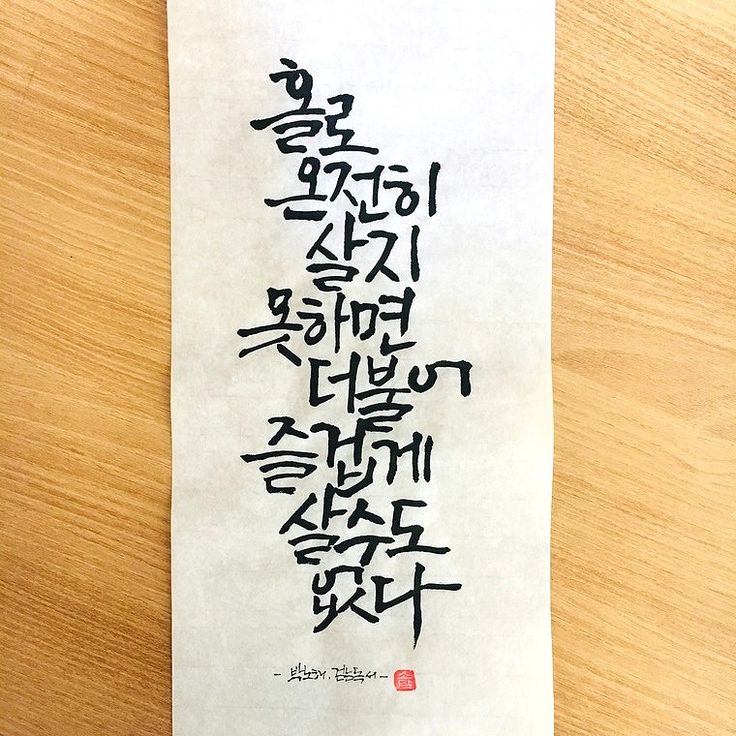 홀로
온전히
살지
못하면
더불어
즐겁게
살수도
없다
- 박노해. 걷는독서 -